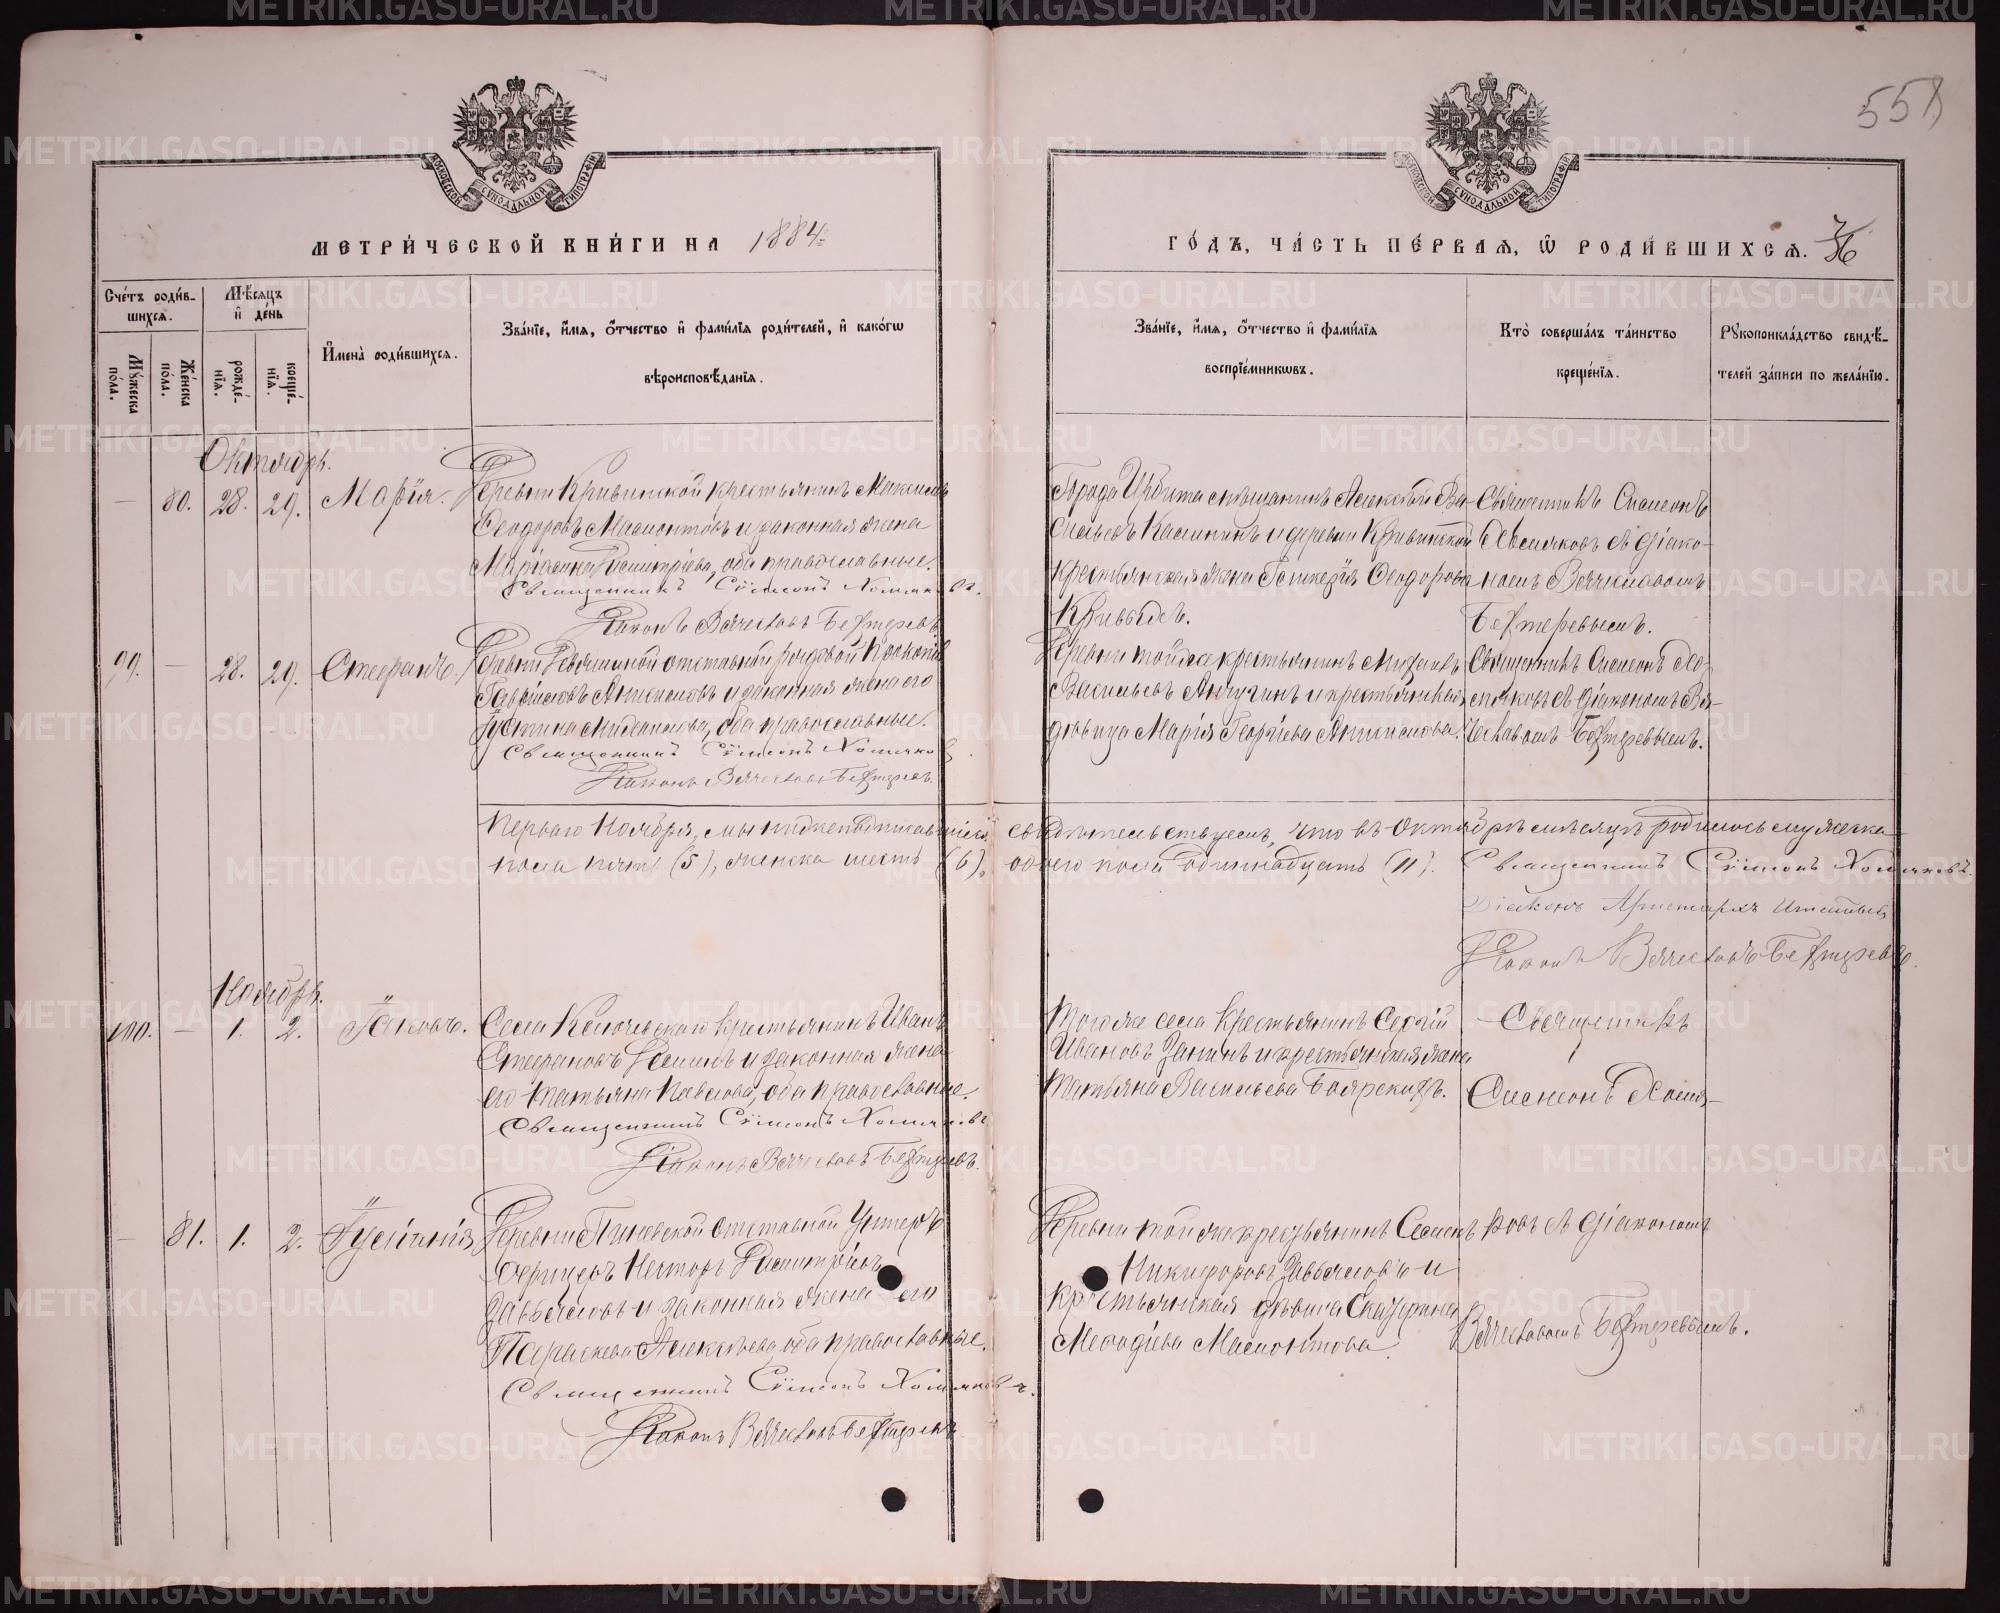 558
МЕТРИ́ЧЕСКОЙ КНИ́ГИ НА 1884
ГО́ДЪ, ЧА́СТЬ ПЕ́РВАЯ, Ѡ РОДИ́ВШИХСЯ. 76
Сче́тъ роди́в-
шихся.
Мѣ́сяцъ
и҆ де́нь
И҆мена̀ роди́вшихся.
Зва́нїе, и҆́мя, ѻ҆́тчество и҆ фами́лїя роди́телей, и҆ како́гѡ
вѣроисповѣ́данїя.
Мꙋ́жеска
по́ла.
Же́нска
по́ла.
рожде́-
нїя.
креще́-
нїя.
Зва́нїе, и҆́мя, ѻ҆́тчество и҆ фами́лїя
воспрїе́мникѡвъ.
Кто̀ соверша́лъ та́инство
креще́нїя.
Рꙋкоприкла́дство свидѣ́-
телей за́писи по жела́нїю.
Октябрь.
— 80. 28. 29. Марія.
Деревни Кривинской крестьянинъ Максимъ
Ѳеодоровъ Мамонтовъ и законная жена
Маріамна Димитріева, оба православные.
Священникъ Сѵмеонъ Хомяковъ.
Діаконъ Вячеславъ Бехтеревъ.
Города Ирбита мѣщанинъ Алексѣй Ва-
сильевъ Калининъ и деревни Кривинской
крестьянская жена Ѳеодорова
Кривыхъ.
Священникъ Симеонъ
Хомяковъ съ діако-
номъ Вячеславомъ
Бехтеревымъ.
99. — 28. 29. Стефанъ.
Деревни отставной рядовой Прокопій
Гавриловъ Анисимовъ и законная жена его
Іустина Михаилова, оба православные.
Священникъ Сѵмеонъ Хомяковъ.
Діаконъ Вячеславъ Бехтеревъ.
Деревни той же крестьянинъ Михаилъ
Васильевъ Анчугинъ и крестьянская
дѣвица Марія Георгіева Анисимова.
Священникъ Симеонъ Хо-
мяковъ съ діакономъ Вя-
чеславомъ Бехтеревымъ.
Перваго Ноября, мы нижеподписавшіеся свидѣтельствуемъ, что въ Октябрѣ мѣсяцѣ родилось мужеска
пола пять (5), женска шесть (6), обоего пола одиннадцать (11). Священникъ Сѵмеонъ Хомяковъ.
Діаконъ Аристархъ
Діаконъ Вячеславъ Бехтеревъ.
Ноябрь.
100. — 1. 2. Іаковъ.
Села Ключевскаго крестьянинъ Иванъ
Стефановъ и законная жена
его Татьяна Павлова, оба православные.
Священникъ Сѵмеонъ Хомяковъ
Діаконъ Вячеславъ Бехтеревъ.
Того же села крестьянинъ Сергій
Ивановъ Занинъ и крестьянская жена
Татьяна Васильева Боярскихъ.
Священникъ
Симеонъ Хомя-
— 81. 1. 2. Іуліанія
Деревни отставной Унтеръ
Офицеръ Несторъ Димитріевъ
Завьяловъ и законная жена его
Параскева Алексѣева оба православные.
Священникъ Сѵмеонъ Хомяковъ.
Діаконъ Вячеславъ Бехтеревъ
Деревни той же крестьянинъ Семенъ
Никифоровъ Завьяловъ и
крестьянская дѣвица Екатерина
Меѳодіева Мамонтова.
ковъ съ діакономъ
Вячеславомъ Бехтеревымъ.